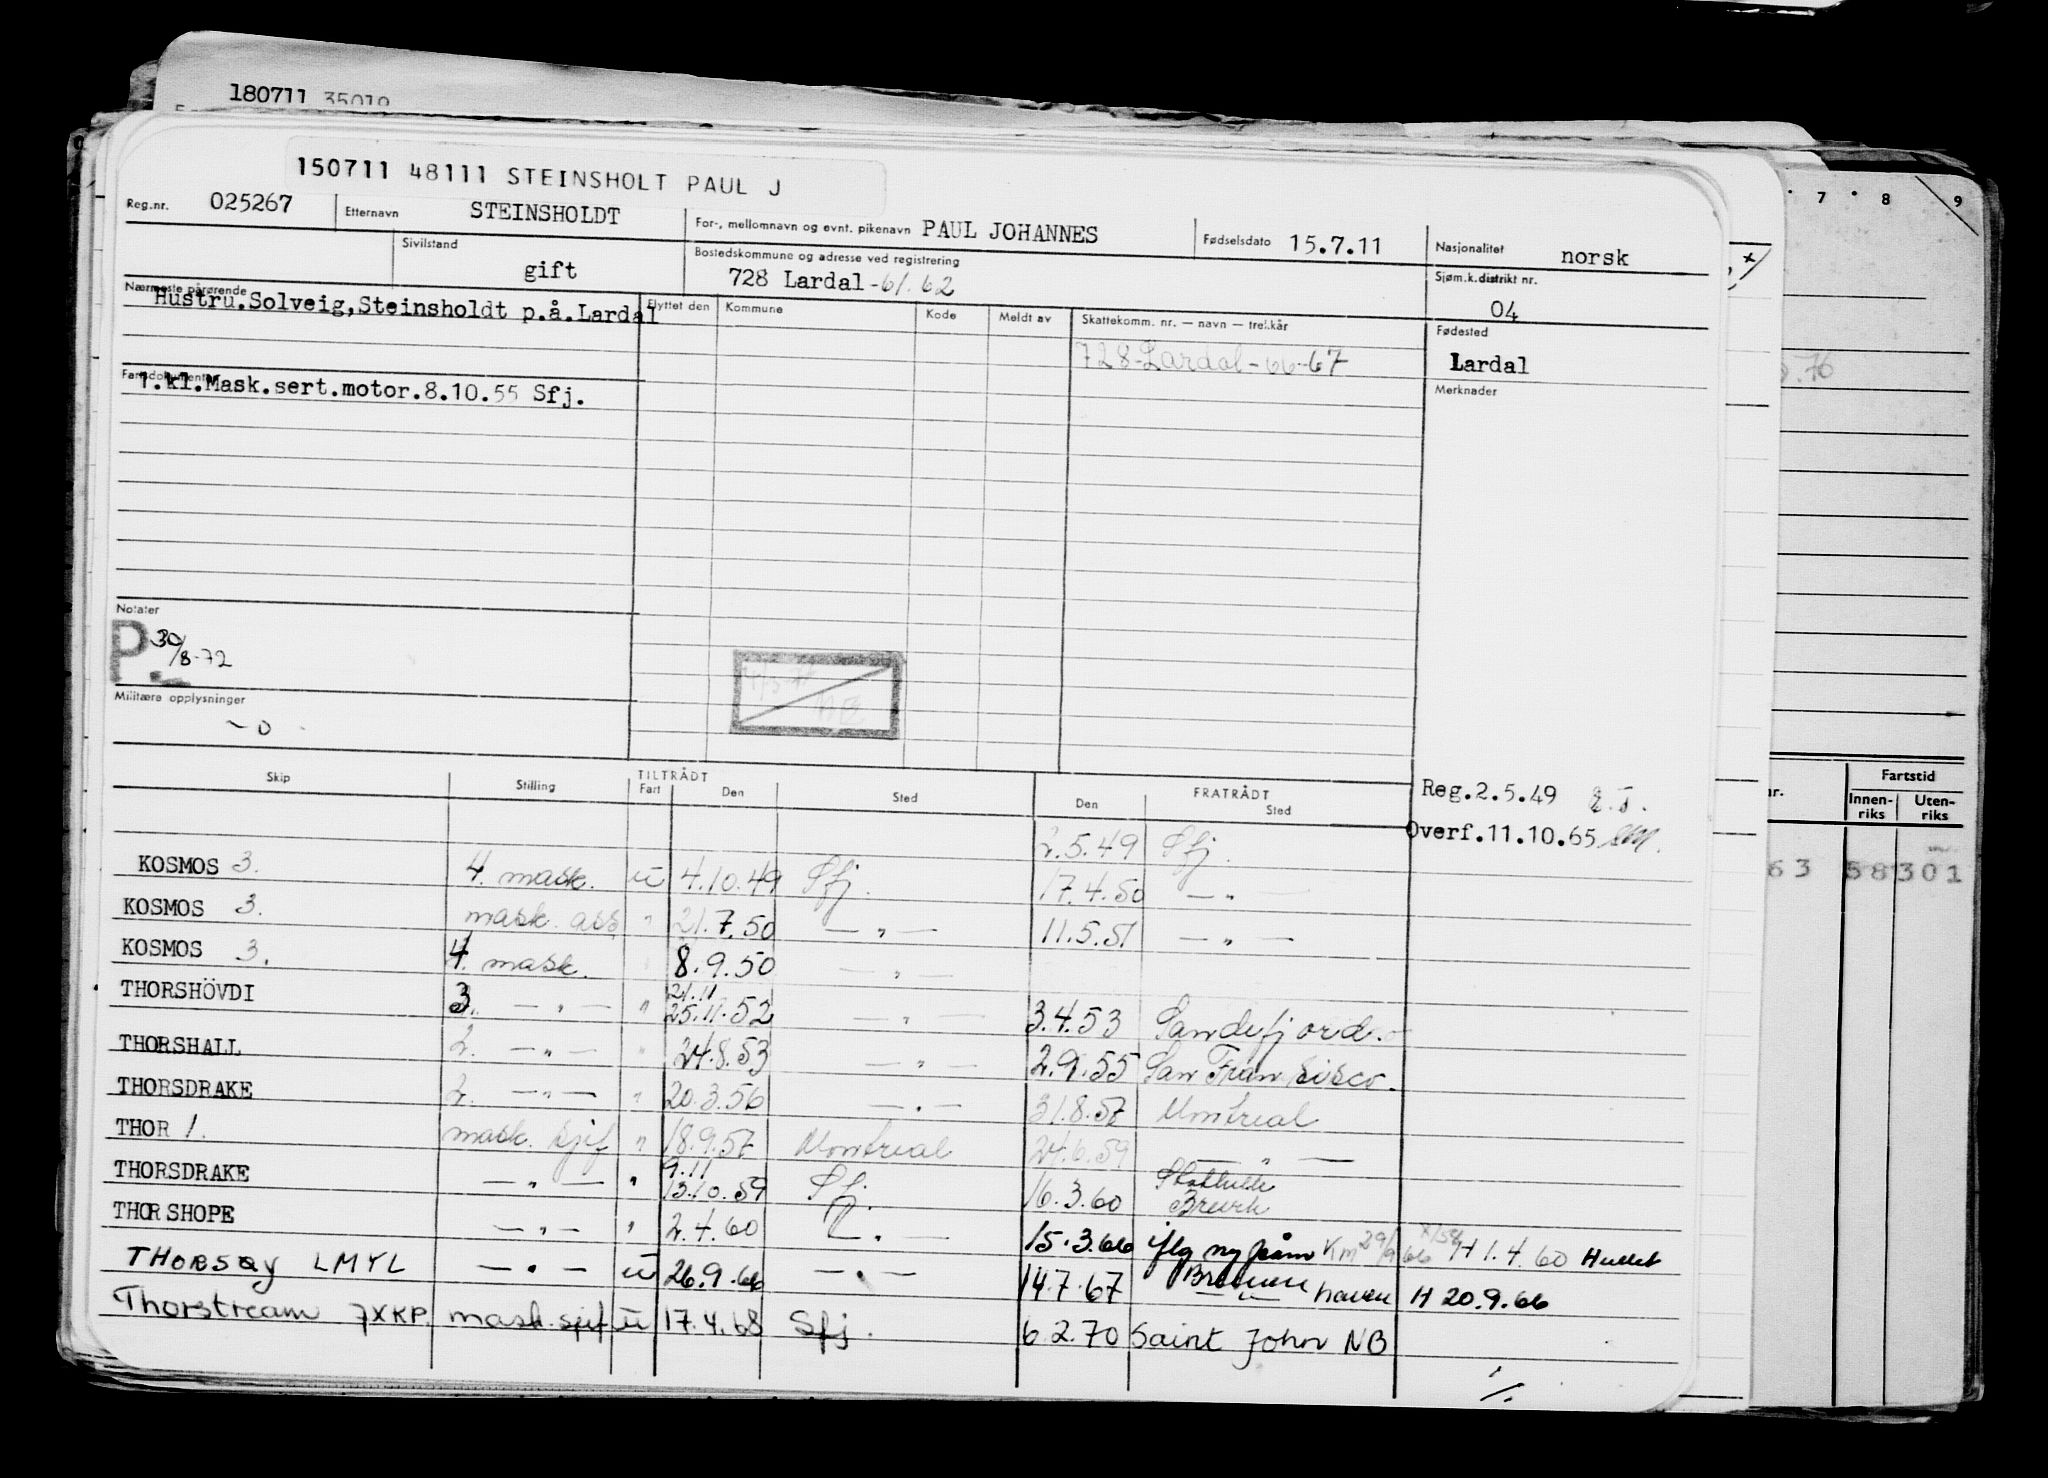 180711 35019
150711 48111 STEINSHOLT PAUL J
Reg.nr. 025267 Etternavn STEINSHOLDT For-, mellomnavn og evnt. pikenavn PAUL JOHANNES Fødselsdato 15.7.11 Nasjonalitet norsk
Sivilstand gift Bostedskommune og adresse ved registrering 728 Lardal -61.62 Sjøm.k.distrikt nr. 04
Nærmeste pårørende Hustru.Solveig,Steinsholdt p.å.Lardal
Flyttet den Kommune Kode Meldt av Skattekomm. nr. — navn — trekkår
728-Lardal-66-67
Fødested Lardal
Merknader
Fartsdokumenter 1.kl.Mask.sert.motor.8.10.55 Sfj.
Notater
P. 30/8-72
Militære opplysninger
- 0
Reg.2.5.49
Overf.11.10.65
Skip Stilling TILTRÅDT Fart Den Sted FRATRÅDT Den Sted
2.5.49 Sfj.
KOSMOS 3. 4. mask. u 4.10.49 Sfj. 17.4.50 — " —
KOSMOS 3. mask. ass " 21.7.50 — " — 11.5.51 — " —
KOSMOS 3. 4. mask. 8.9.50 — " —
THORSHÖVDI 3. — " — " 21.11 25.11.52 — " — 3.4.53 Sandefjord.
THORSHALL 2. — " — " 24.8.53 — " — 2.9.55 San Fransisco.
THORSDRAKE 2. — " — " 20.3.56 — " — 31.8.57 Montreal
THOR 1. mask. sjef " 18.9.57 Montreal 24.6.59 — " —
THORSDRAKE — " — " 9.11 13.10.59 Sfj. 16.3.60 Brevik
THORSHOPE — " — " 2.4.60 — " — 15.3.66 iflg ny Km 29/9 66 H 1.4.60 Hullet
THORSØY LMYL — " — u 26.9.66 — " — 14.7.67 Bremerhaven H 20.9.66
Thorstream JXKP. mask.sjef u 17.4.68 Sfj. 6.2.70 Saint John NB
7 8 9
Fartstid
Innenriks Utenriks
63 58301